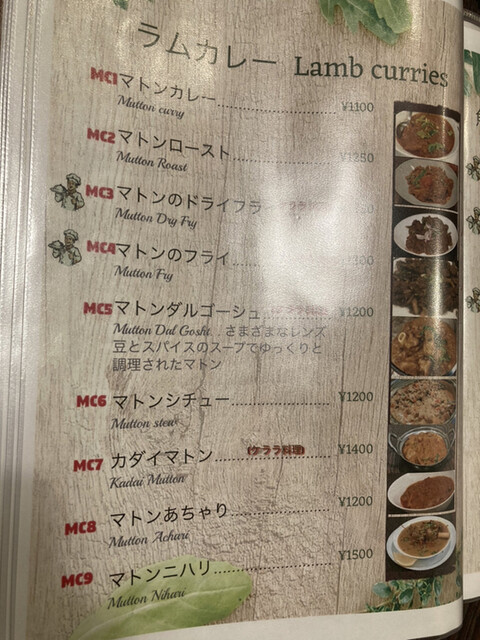 ラムカレー Lamb curries
MC1 マトンカレー ¥1100
Mutton curry
MC2 マトンロースト ¥1250
Mutton Roast
MC3 マトンのドライフラ
Mutton Dry Fry
MC4 マトンのフライ
Mutton Fry
MC5 マトンダルゴーシュ ¥1200
Mutton Dal Gosht. . さまざまなレンズ
豆とスパイスのスープでゆっくりと
調理されたマトン
MC6 マトンシチュー ¥1200
Mutton stew
MC7 カダイマトン (ケララ料理) ¥1400
Kadai Mutton
MC8 マトンあちゃり ¥1200
Mutton Achari
MC9 マトンニハリ ¥1500
Mutton Nihari